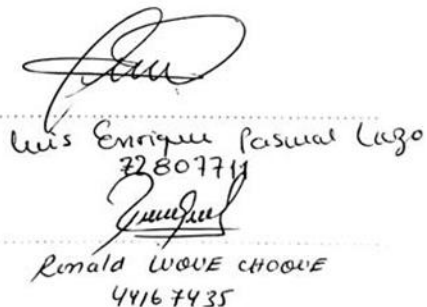 Luis Enrique Pascual Lazo
72807711
Ronald LUQUE CHOQUE
44167435